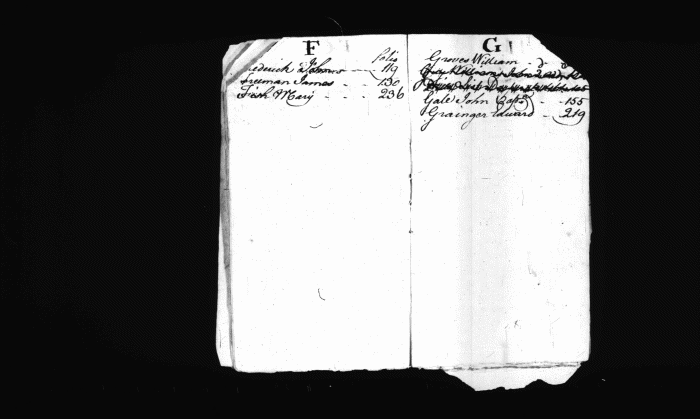 F
folio
ederick Thomas 119
Freeman James - - 130
Fish Mary - - 236
G
Groves William - d
Gale John Capt - 155
Grainger Edward - 219